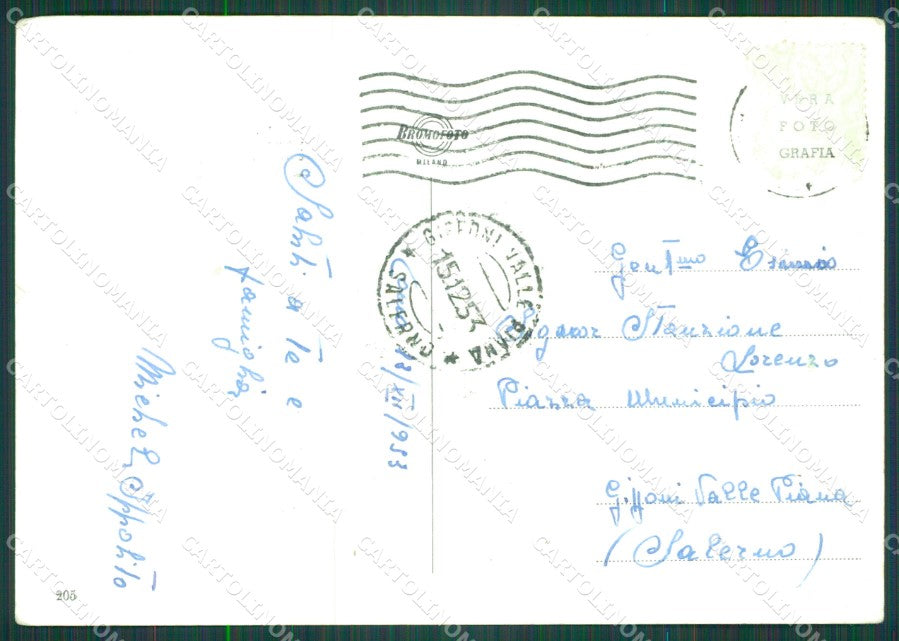 BROMOFOTO
MILANO
VERA
FOTO
GRAFIA
GIFFONI VALLE PIANA
15.12.53
(SALERNO)
Saluti a te e
famiglia
Michele Ippolito
13/XII/1953
Gent.mo
Signor Stanzione
Lorenzo
Piazza Municipio
Giffoni Valle Piana
(Salerno)
205
CARTOLINOMANIA